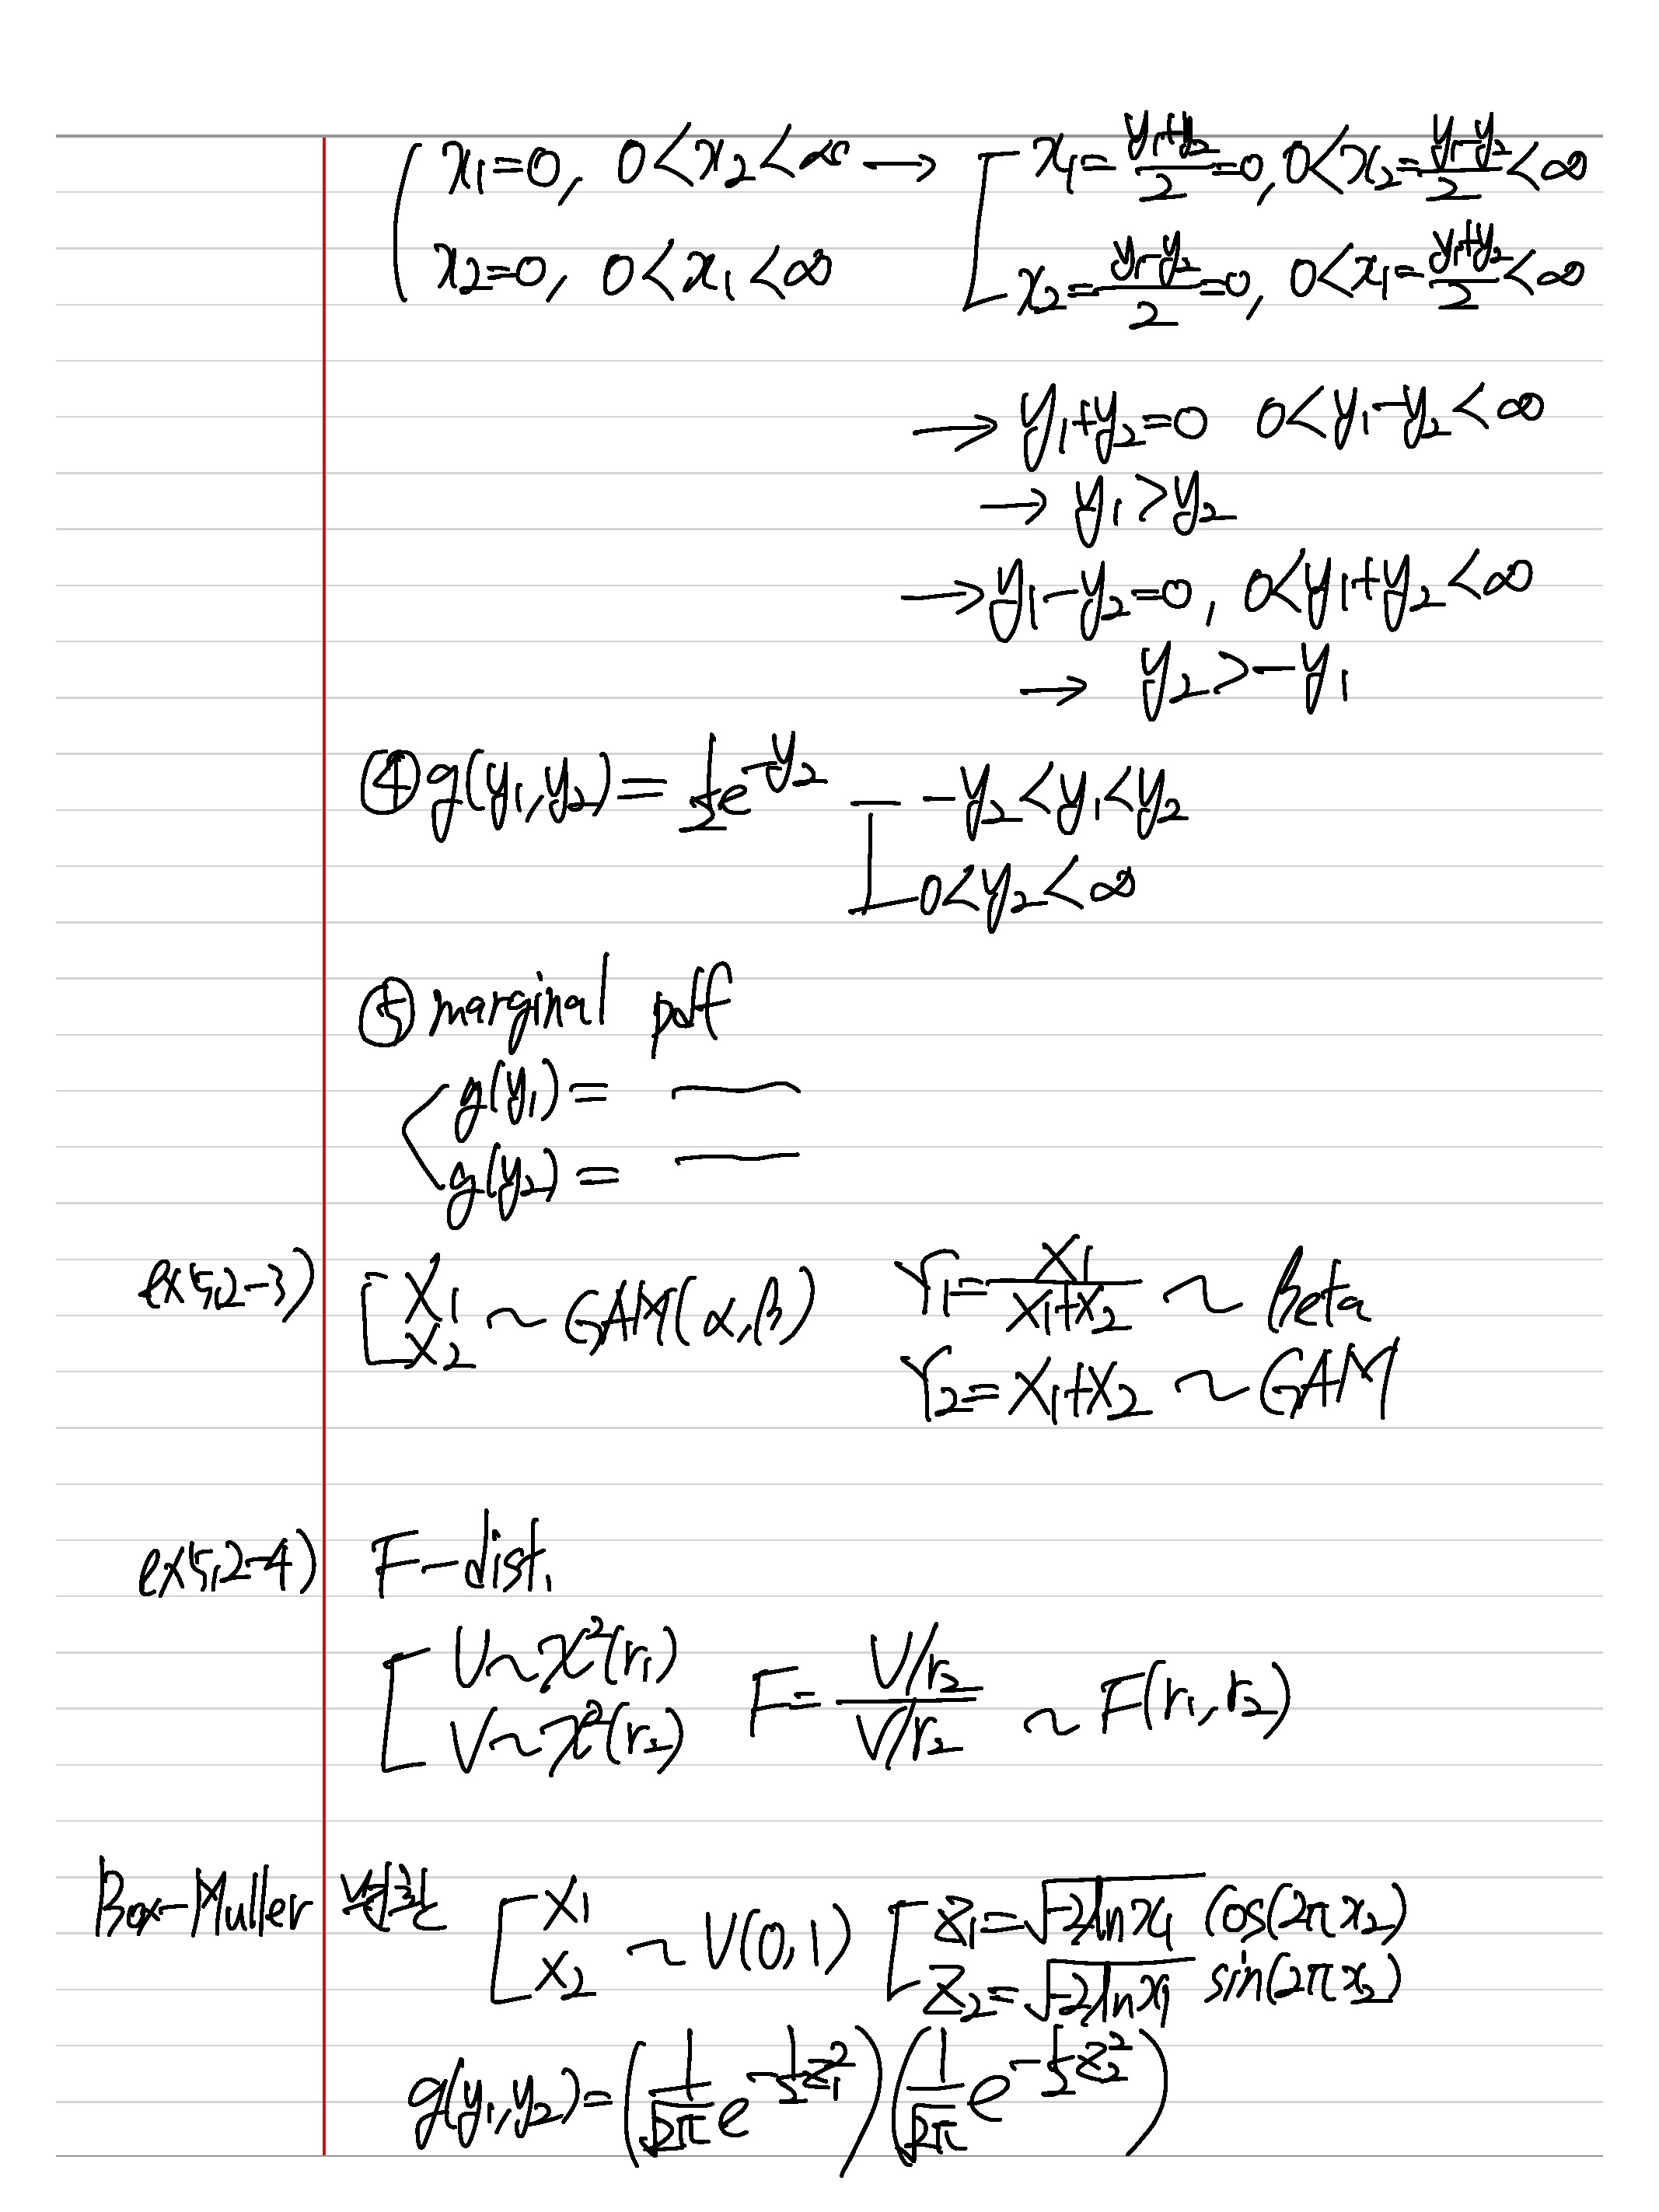 x₁=0, 0<x₂<∞ → x₁=(y₁+y₂)/2=0, 0<x₂=(y₁-y₂)/2<∞
x₂=0, 0<x₁<∞ x₂=(y₁-y₂)/2=0, 0<x₁=(y₁+y₂)/2<∞
→ y₁+y₂=0 0<y₁-y₂<∞
→ y₁>y₂
→ y₁-y₂=0, 0<y₁+y₂<∞
→ y₂>-y₁
④ g(y₁,y₂)=½e^(-y₂) -y₂<y₁<y₂
0<y₂<∞
⑤ marginal pdf
g(y₁)= —
g(y₂)= —
ex5.2-3) X₁ X₂ ~ GAM(α,β) Y₁=X₁/(X₁+X₂) ~ Beta
Y₂=X₁+X₂ ~ GAM
ex5.2-4) F-dist.
U~χ²(r₁) V~χ²(r₂) F=(U/r₂)/(V/r₂) ~ F(r₁,r₂)
Box-Muller 변환 X₁ X₂ ~ U(0,1) Z₁=√(-2lnx₁) cos(2πx₂)
Z₂=√(-2lnx₁) sin(2πx₂)
g(y₁,y₂)=(1/√(2π) e^(-½z₁²))(1/√(2π) e^(-½z₂²))